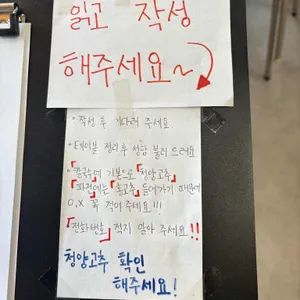 읽고 작성
해주세요~
• 작성 후 기다려 주세요
• 테이블 정리 후 성함 불러 드려요
• 칼국수에 기본으로 「청양고추」
「파전에는 홍고추」 들어가기 때문에
O,X 꼭 적어주세요!!!
「전화번호」 적지 말아 주세요!!
청양고추 확인
해주세요!